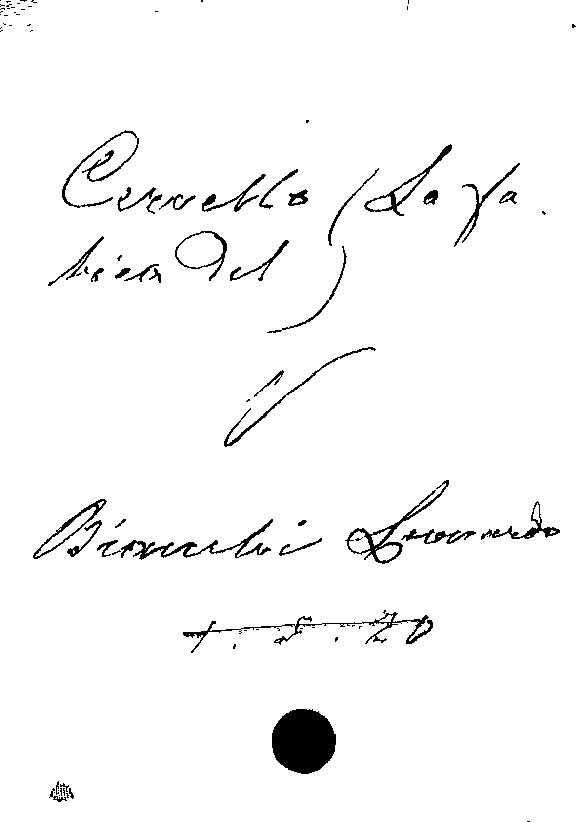 Cervello (La fa
brica del)
V
Bianchi Leonardo
1.5.20